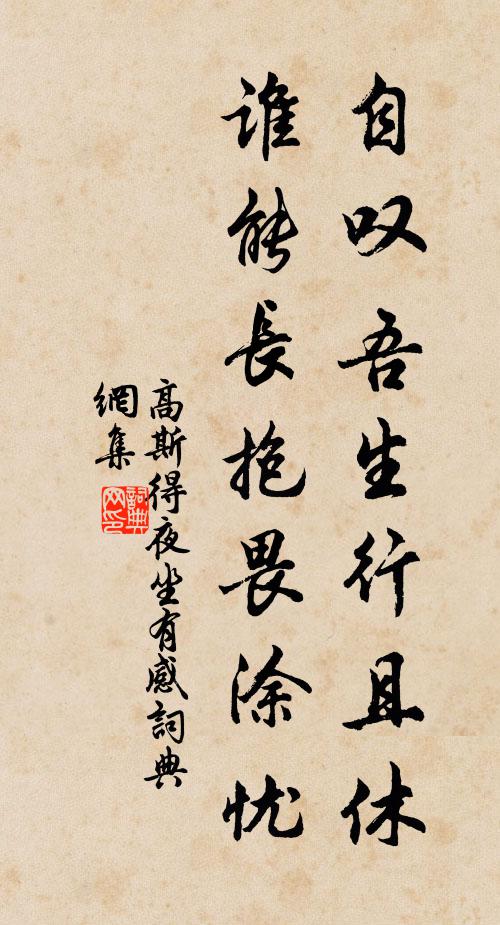 自叹吾生行且休
谁能長抱畏涂忧
高斯得夜坐有感詞典
網集
詞典网印